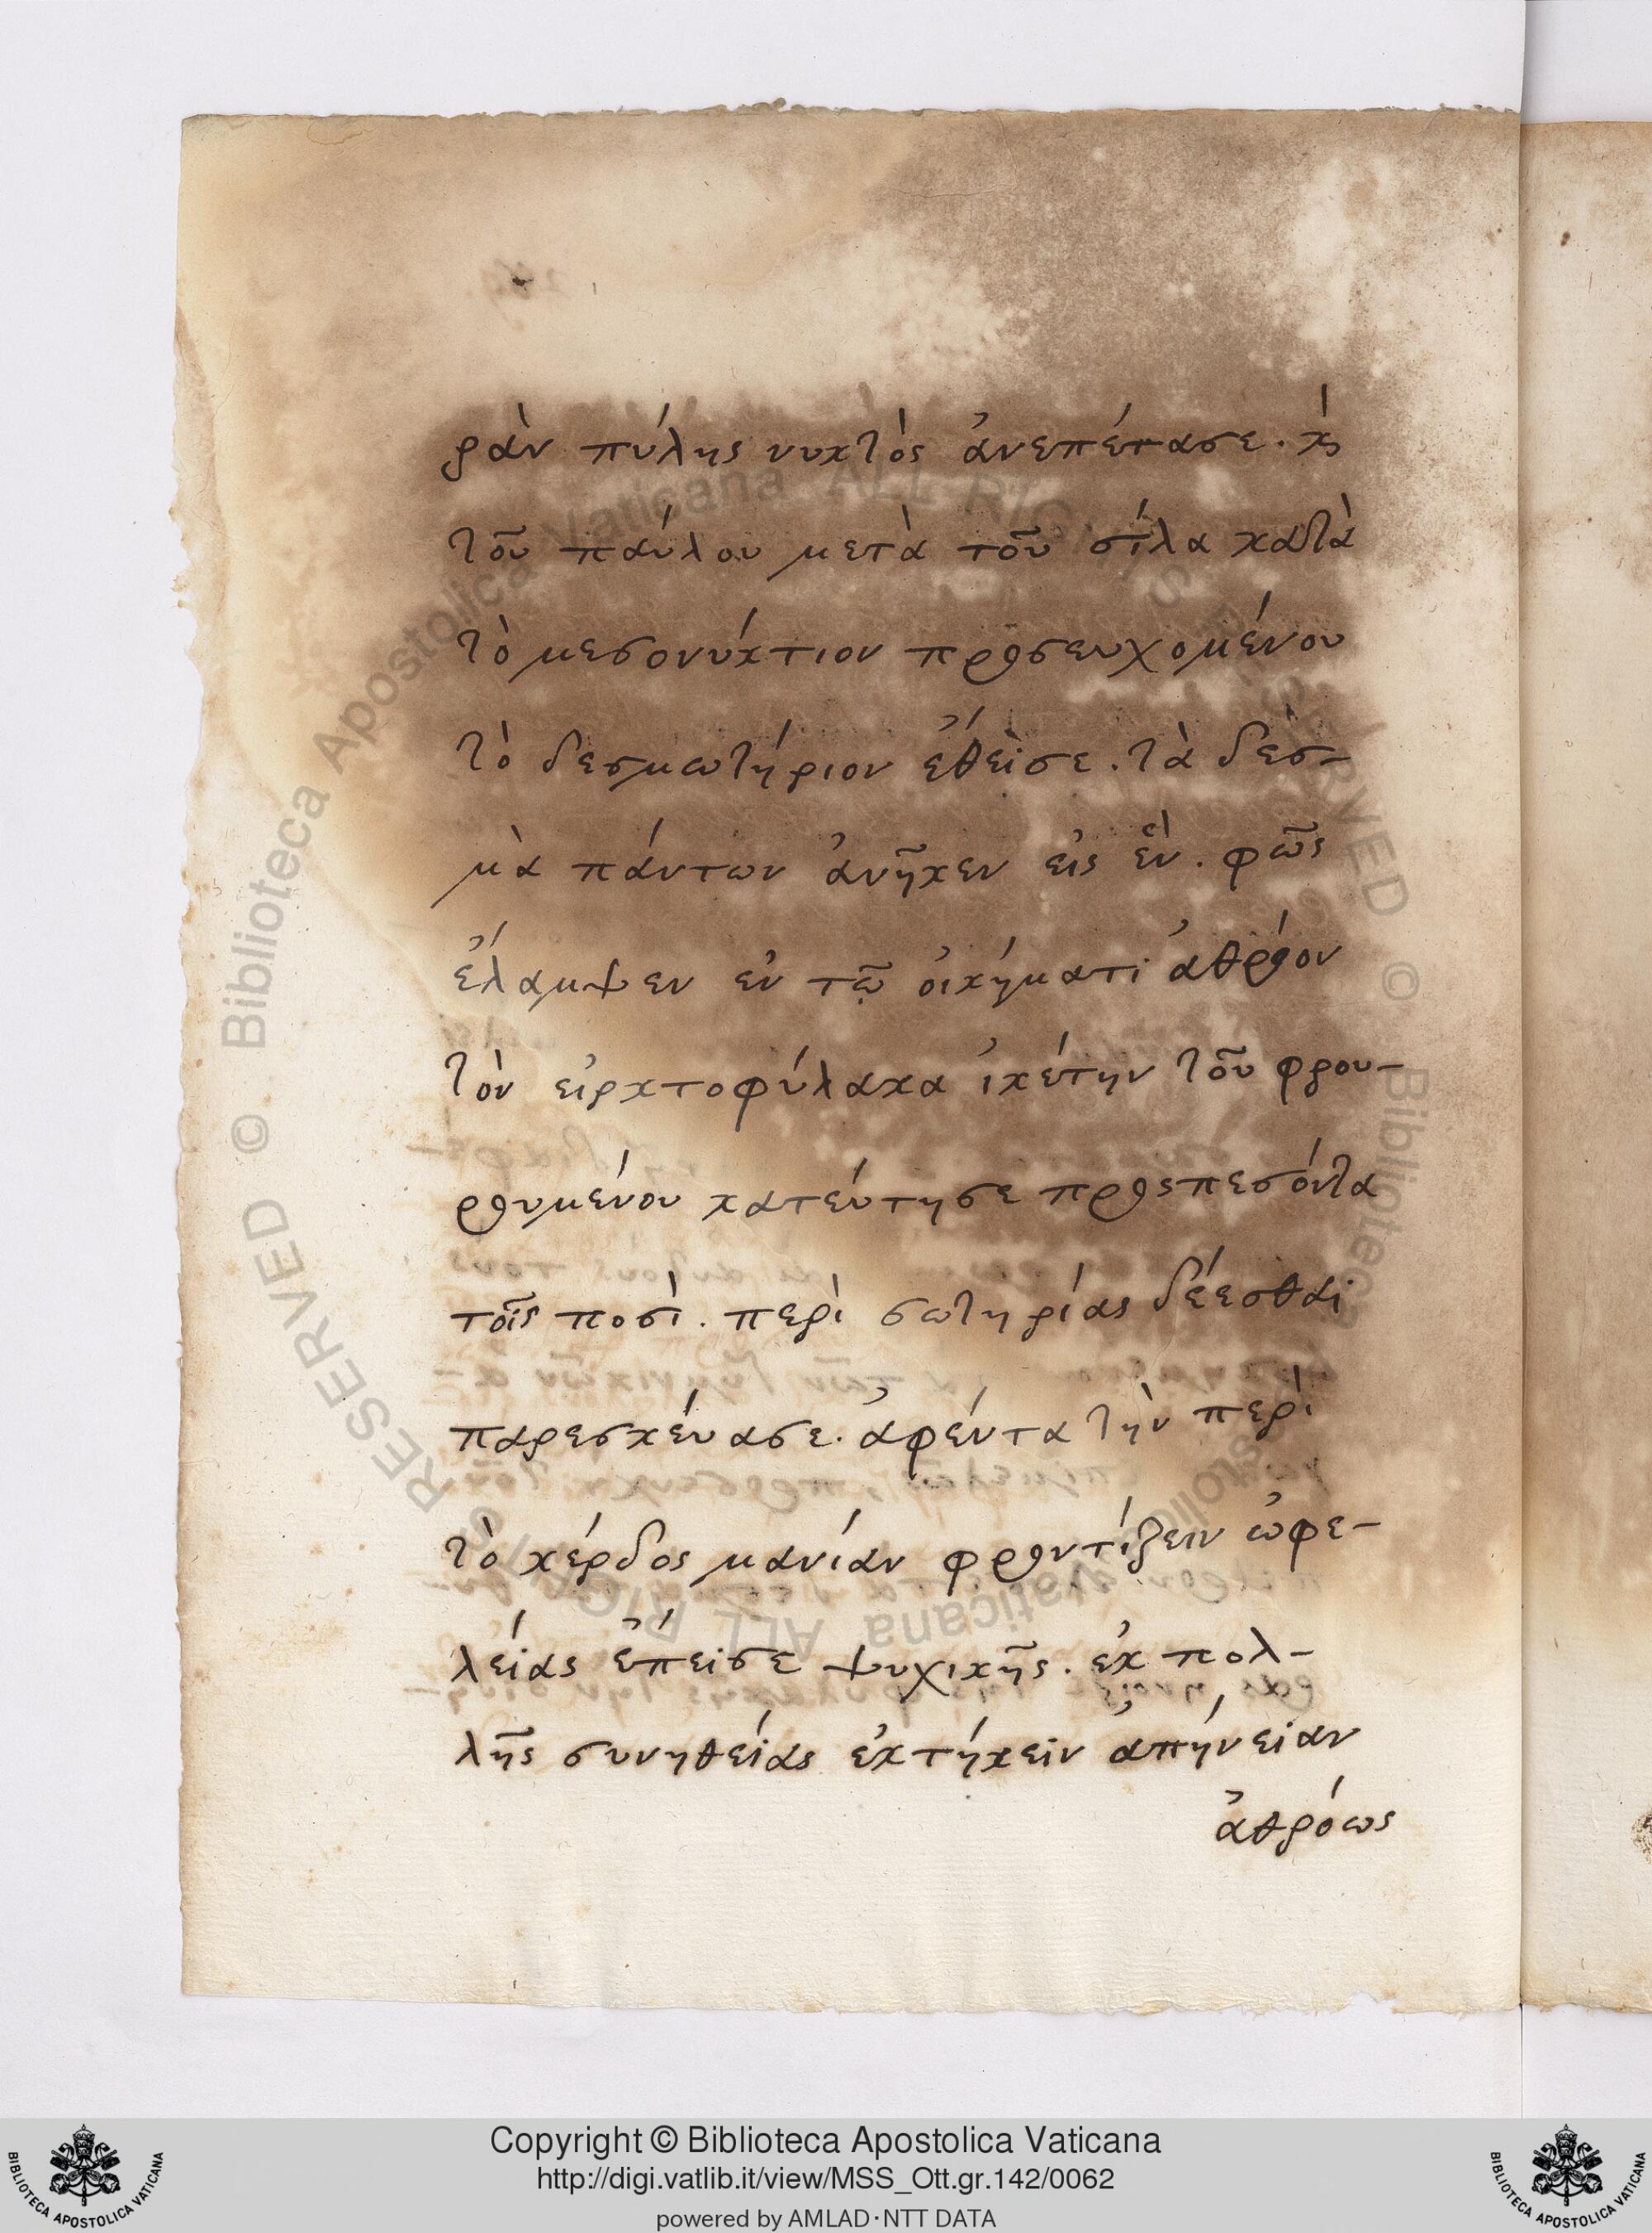 ρὰν πύλης νυκτὸς ἀνεπέτασε. κὶ
τοῦ παύλου μετὰ τοῦ σίλα κατὰ
τὸ μεσονύκτιον προσευχομένου
τὸ δεσμωτήριον ἔθεισε. τὰ δεσ-
μὰ πάντων ἀνῆκεν εἰς ἓν. φῶς
ἔλαμψεν ἐν τῷ οἰκήματι ἀθρόον
τὸν εἰρκτοφύλακα ἱκέτην τοῦ φρου-
ρουμένου κατεύτησε προςπεσόντα
τοῖς ποσὶ. περὶ σωτηρίας δέεσθαι
παρεσκεύασε. ἀφέντα τὴν περὶ
τὸ κέρδος μανίαν φροντίζειν ὠφε-
λείας ἔπεισε ψυχικῆς. ἐκ πολ-
λῆς συνηθείας ἐκτήκειν ἀπήνειαν
ἀθρόως
© Biblioteca Apostolica Vaticana ALL RIGHTS RESERVED © Biblioteca Apostolica Vaticana ALL RIGHTS RESERVED
Copyright © Biblioteca Apostolica Vaticana
http://digi.vatlib.it/view/MSS_Ott.gr.142/0062
powered by AMLAD·NTT DATA
BIBLIOTECA APOSTOLICA VATICANA
BIBLIOTECA APOSTOLICA VATICANA